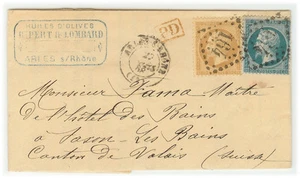 HUILES D'OLIVES
ARLES s/Rhône
PD
Monsieur Fama Maître
de l'hôtel des Bains
à Saxon-Les Bains
Canton de Valais (Suisse)